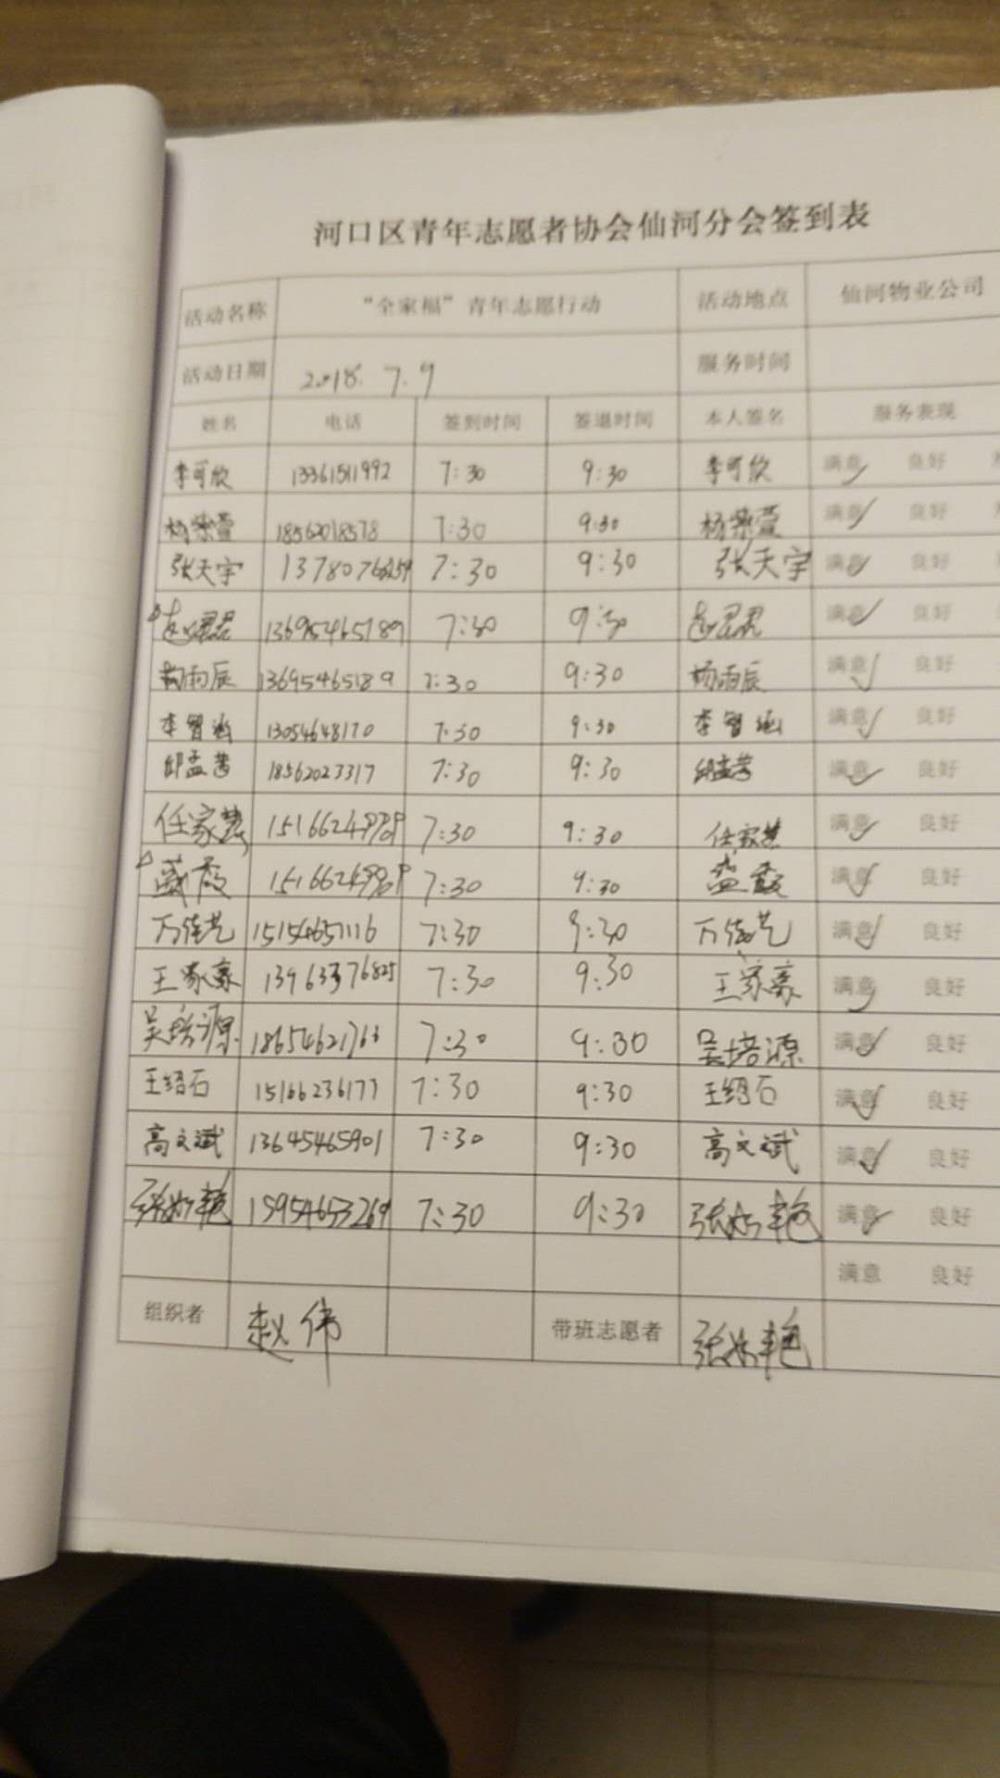 河口区青年志愿者协会仙河分会签到表
活动名称 “全家福”青年志愿行动 活动地点 仙河物业公司
活动日期 2018. 7. 9 服务时间
姓名 电话 签到时间 签退时间 本人签名 服务表现
李可欣 13361511992 7:30 9:30 李可欣 满意 良好
杨紫萱 18562018578 7:30 9:30 杨紫萱 满意 良好
张天宇 7:30 9:30 张天宇 满意 良好
赵君君 13695465189 7:30 9:30 赵君君 满意 良好
杨雨辰 13695465189 7:30 9:30 杨雨辰 满意 良好
李智涵 13054648170 7:30 9:30 李智涵 满意 良好
邱孟茜 18562023317 7:30 9:30 邱孟茜 满意 良好
任家慧 7:30 9:30 满意 良好
盖霞 7:30 9:30 盖霞 满意 良好
万佳艺 15154651116 7:30 9:30 万佳艺 满意 良好
王家豪 13963376825 7:30 9:30 王家豪 满意 良好
吴培源 18654621763 7:30 9:30 吴培源 满意 良好
王绍石 15166236177 7:30 9:30 王绍石 满意 良好
高文斌 13645465901 7:30 9:30 高文斌 满意 良好
15954653269 7:30 9:30 满意 良好
满意 良好
组织者 赵伟 带班志愿者